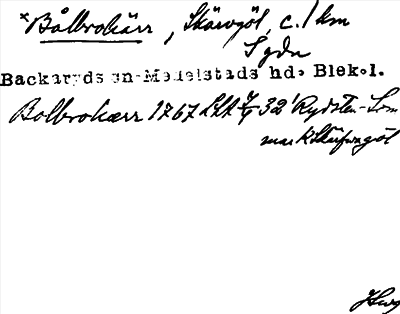 *Bålbrokärr, Skärvgöl, c. 1 km
S gdn
Backaryds sn Medelstads hd. Blek.l.
Bolbrokærr 1767 LSA 32 Rydsten-Som
mark Skärfwagöl